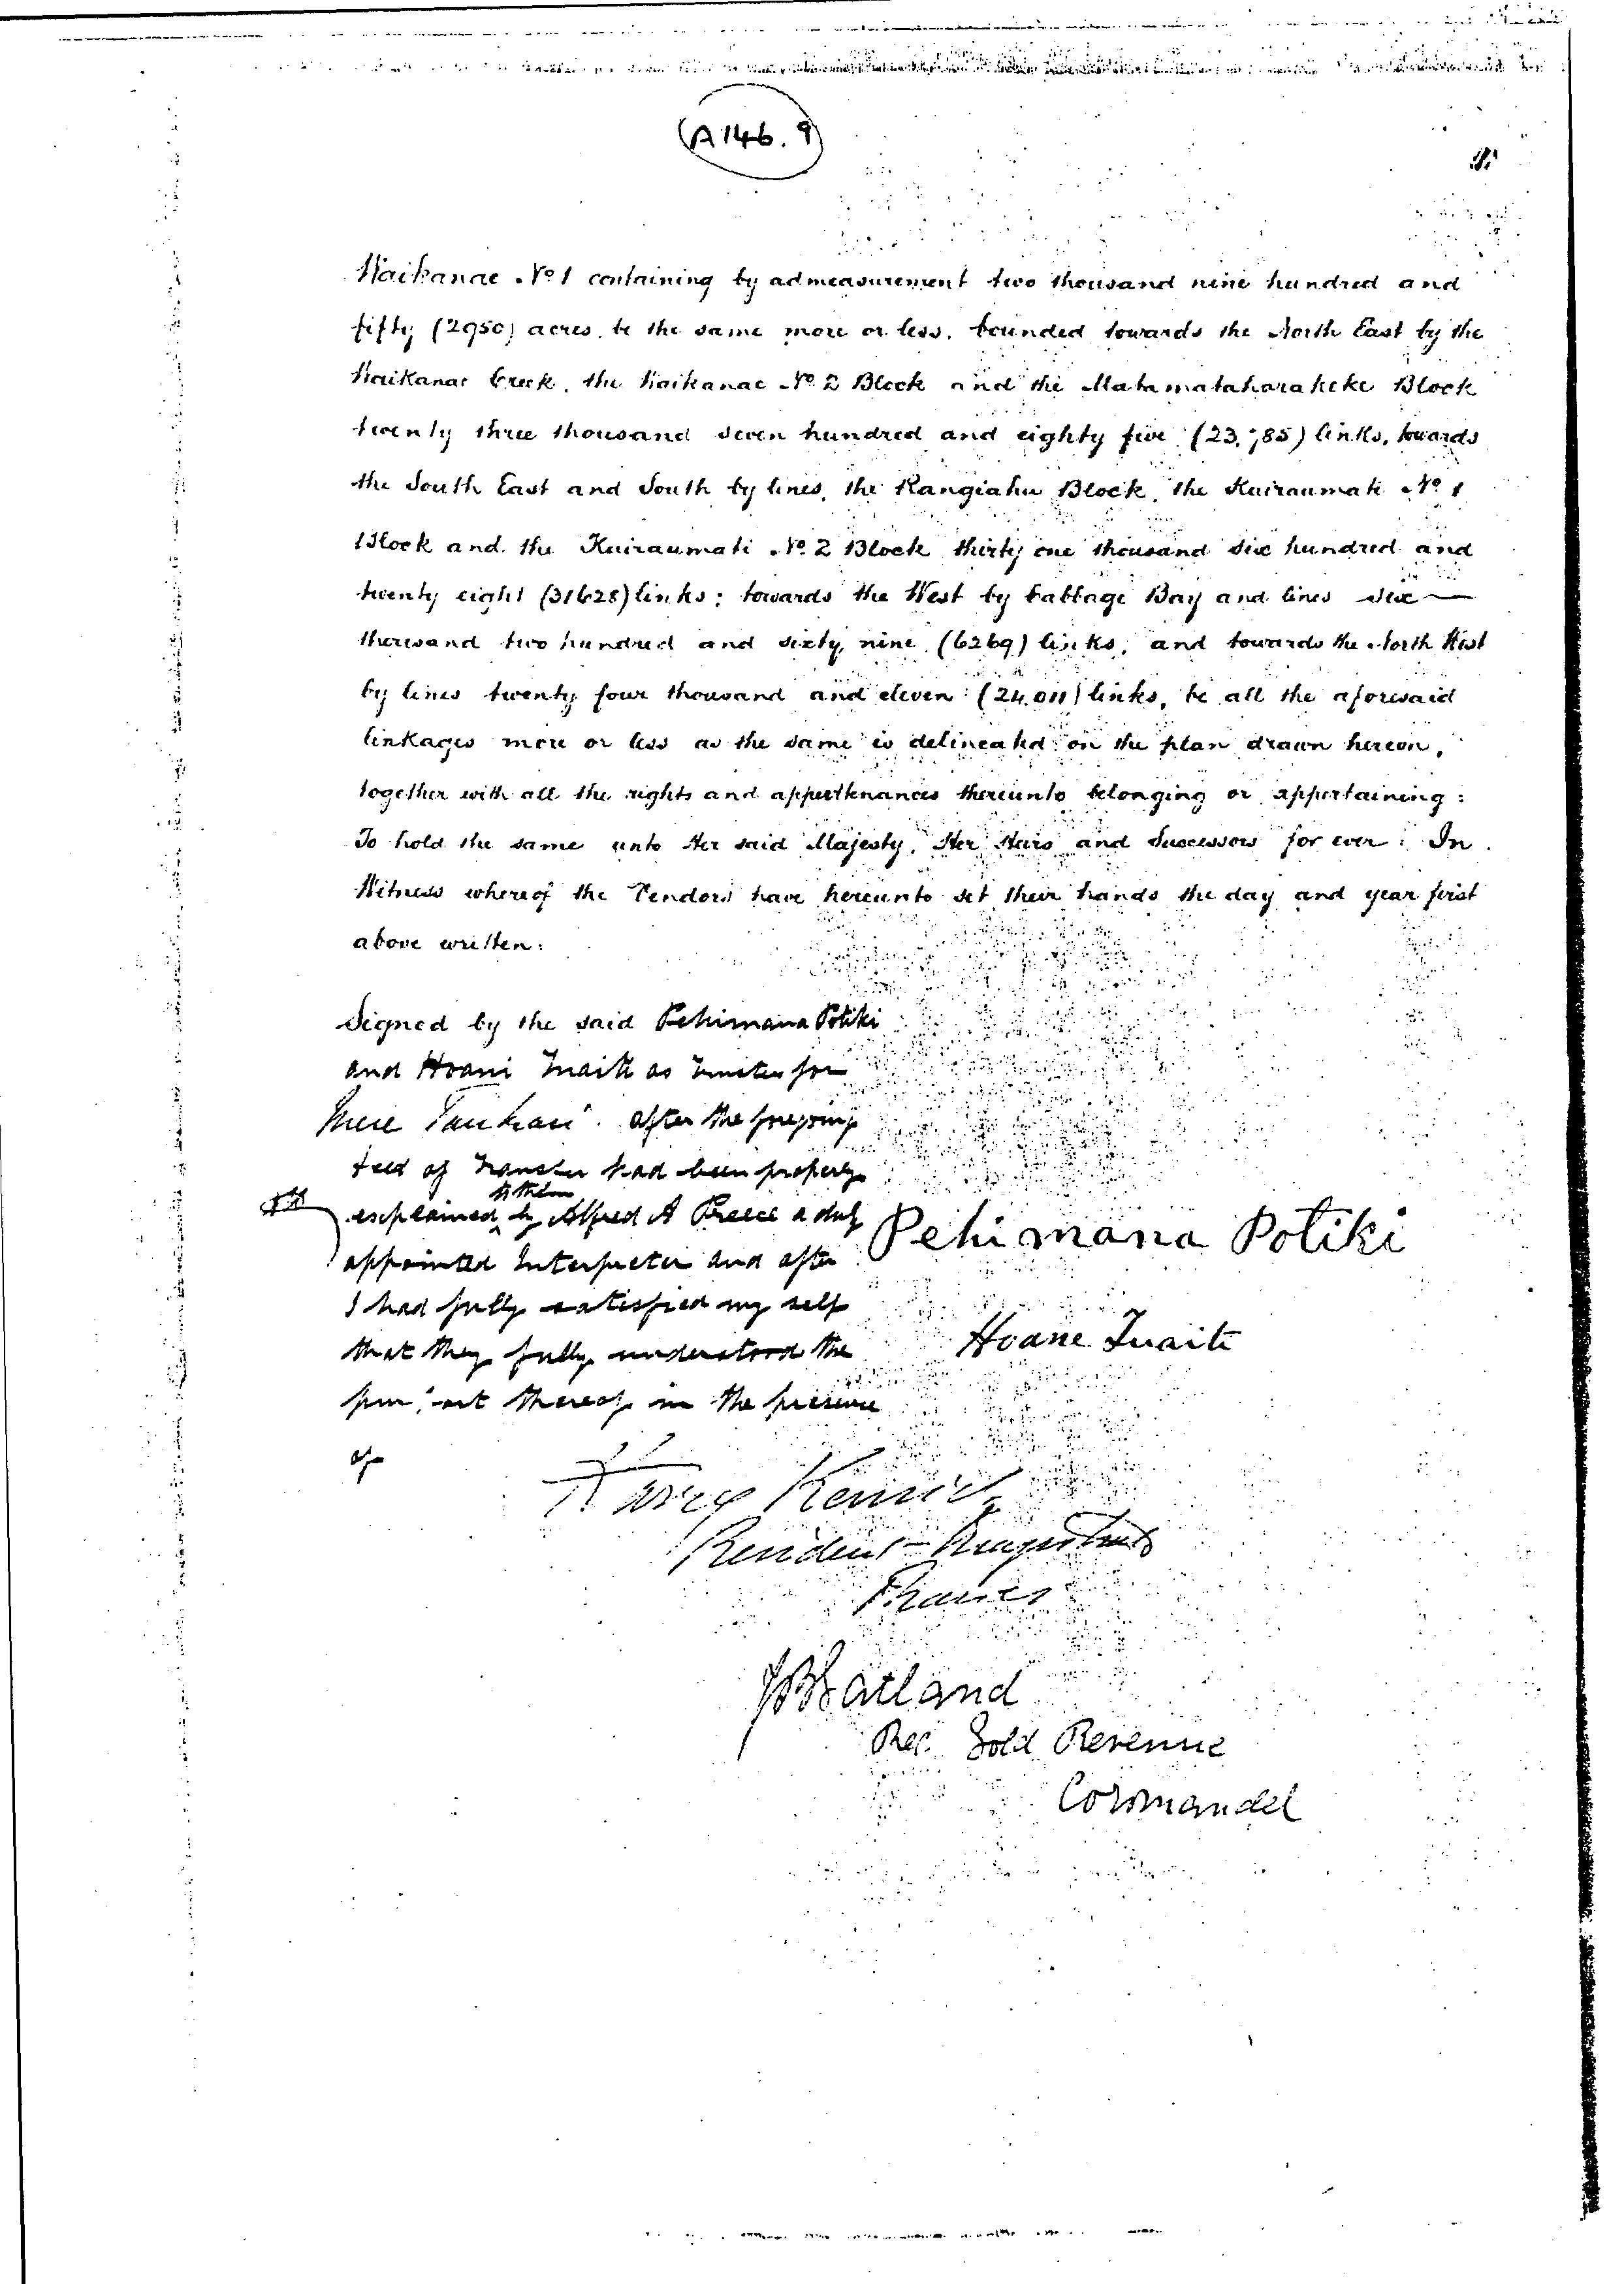 (A146.9)
Waikanae No 1 containing by admeasurement two thousand nine hundred and
fifty (2950) acres be the same more or less, bounded towards the North East by the
Waikanae Creek, the Waikanae No 2 Block and the Matamataharakeke Block
twenty three thousand seven hundred and eighty five (23,785) links, towards
the South East and South by lines, the Rangiahu Block, the Kuiraumati No 1
Block and the Kuiraumati No 2 Block thirty one thousand six hundred and
twenty eight (31628) links; towards the West by Cabbage Bay and lines six
thousand two hundred and sixty nine (6269) links; and towards the North West
by lines twenty four thousand and eleven (24,011) links, be all the aforesaid
linkages more or less as the same is delineated on the plan drawn hereon,
together with all the rights and appurtenances thereunto belonging or appertaining:
To hold the same unto Her said Majesty, Her Heirs and Successors for ever: In
Witness whereof the Vendors have hereunto set their hands the day and year first
above written:
Signed by the said Pehimana Potiki
and Hoani Tuaiti as trustee for
after the foregoing
deed of transfer had been properly
explained to them by Alfred A Preece a duly
appointed Interpreter and after
I had fully satisfied my self
that they fully understood the
thereof in the presence
of
Pehimana Potiki
Hoane Tuaiti
Harry Kenrick
Resident Magistrate
Thames
Rec. Gold Revenue
Coromandel